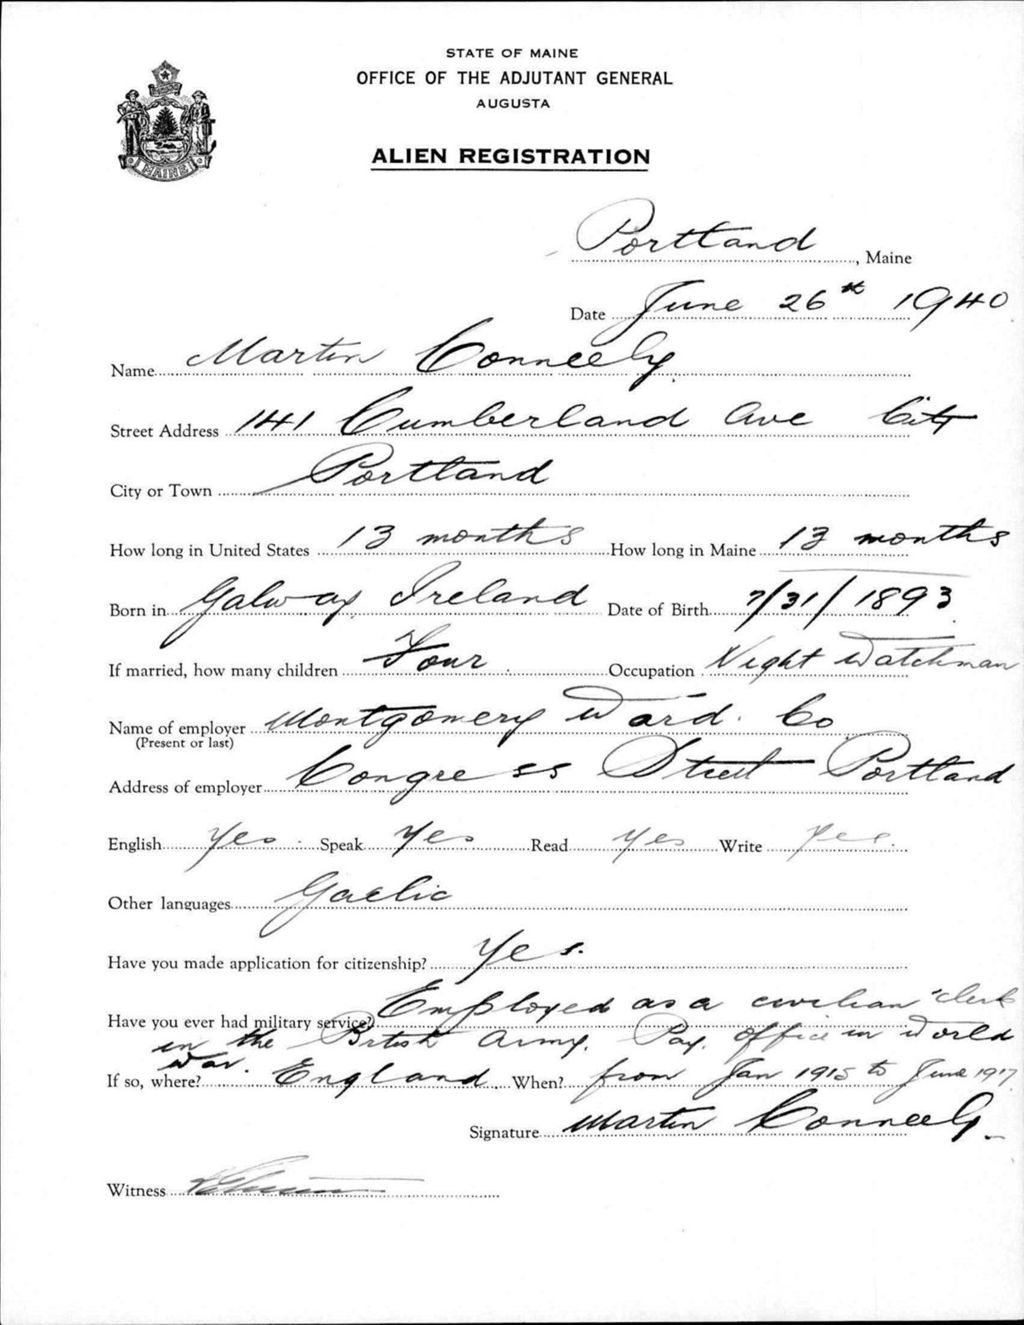 STATE OF MAINE
OFFICE OF THE ADJUTANT GENERAL
AUGUSTA
MAINE
ALIEN REGISTRATION
Portland, Maine
Date June 26th 1940
Name Martin Conneely
Street Address 141 Cumberland Ave City
City or Town Portland
How long in United States 13 months How long in Maine 13 months
Born in Galway Ireland Date of Birth 7/31/1893
If married, how many children Four Occupation Night Watchman
Name of employer Montgomery Ward. Co
(Present or last)
Address of employer Congress Street Portland
English Yes. Speak Yes Read Yes Write Yes.
Other languages Gaelic
Have you made application for citizenship? Yes.
Have you ever had military service? Employed as a civilian clerk
in the British Army. Pay. Office in World
War.
If so, where? England When? from Jan 1915 to June 1917
Signature Martin Conneely
Witness